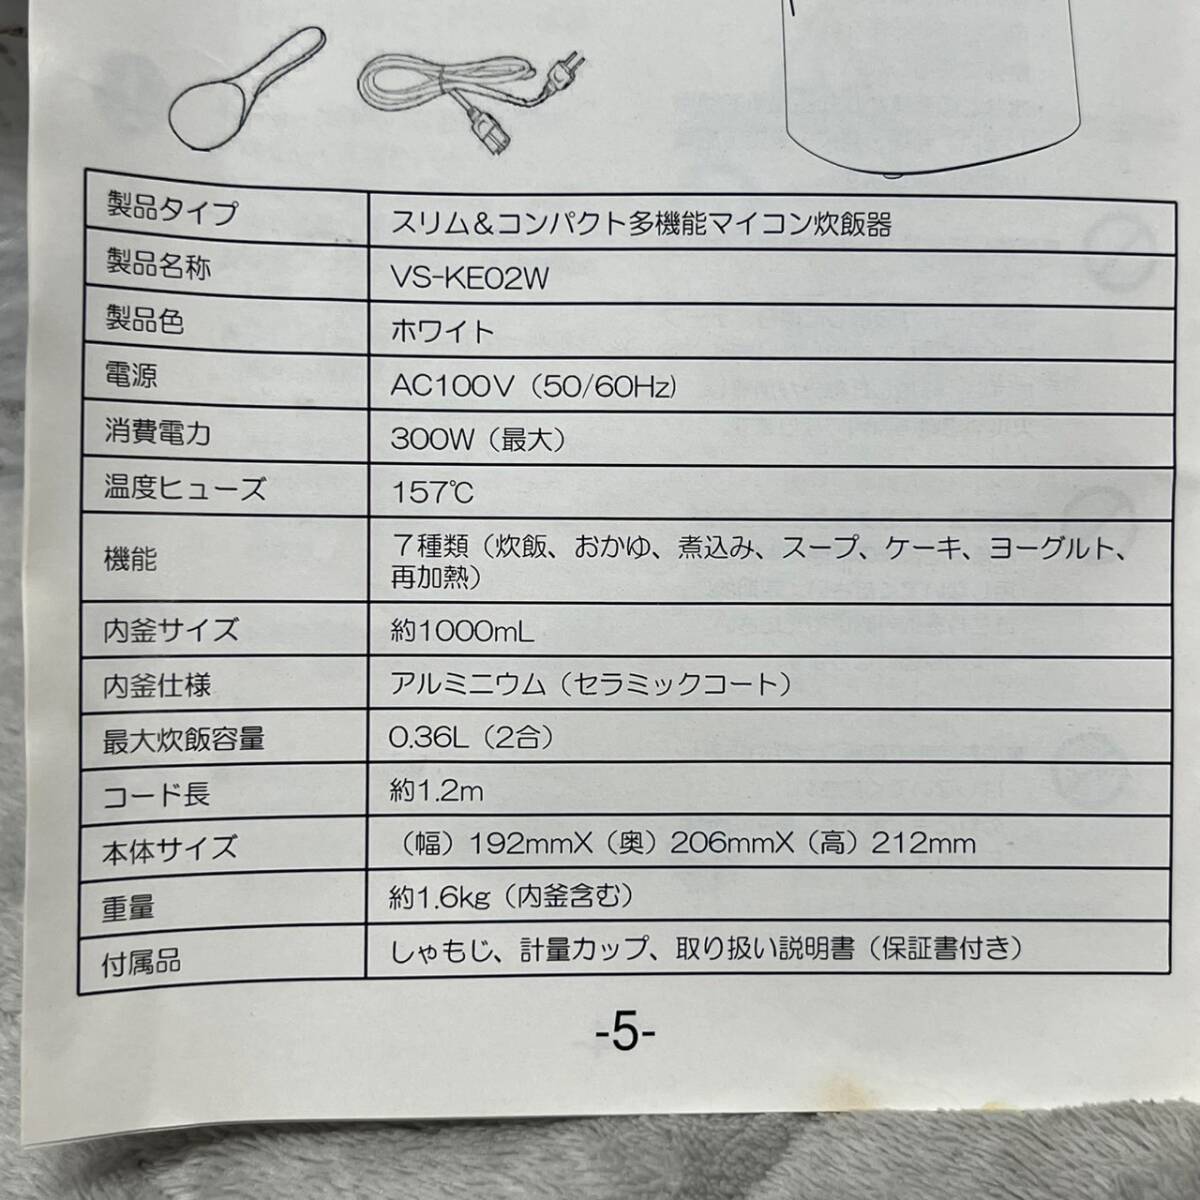 製品タイプ スリム&コンパクト多機能マイコン炊飯器
製品名称 VS-KE02W
製品色 ホワイト
電源 AC100V（50/60Hz）
消費電力 300W（最大）
温度ヒューズ 157℃
機能 7種類（炊飯、おかゆ、煮込み、スープ、ケーキ、ヨーグルト、
再加熱）
内釜サイズ 約1000mL
内釜仕様 アルミニウム（セラミックコート）
最大炊飯容量 0.36L（2合）
コード長 約1.2m
本体サイズ （幅）192mmX（奥）206mmX（高）212mm
重量 約1.6kg（内釜含む）
付属品 しゃもじ、計量カップ、取り扱い説明書（保証書付き）
-5-